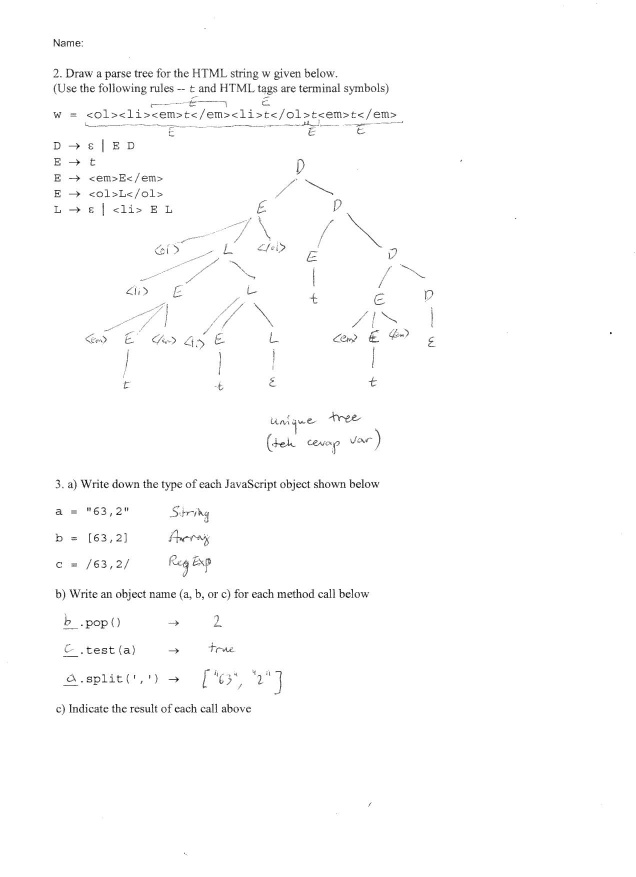 Name:
2. Draw a parse tree for the HTML string w given below.
(Use the following rules -- t and HTML tags are terminal symbols)
E E
w = <ol><li><em>t</em><li>t</ol>t<em>t</em>
E E E
D → ε | E D
E → t
E → <em>E</em>
E → <ol>L</ol>
L → ε | <li> E L
D
E D
<ol> L </ol> E D
<li> E L t E D
<em> E </em> <li> E L <em> E </em> ε
t t ε t
unique tree
(tek cevap var)
3. a) Write down the type of each JavaScript object shown below
a = "63,2" String
b = [63,2] Array
c = /63,2/ RegExp
b) Write an object name (a, b, or c) for each method call below
b.pop() → 2
c.test(a) → true
a.split(',') → ["63", "2"]
c) Indicate the result of each call above